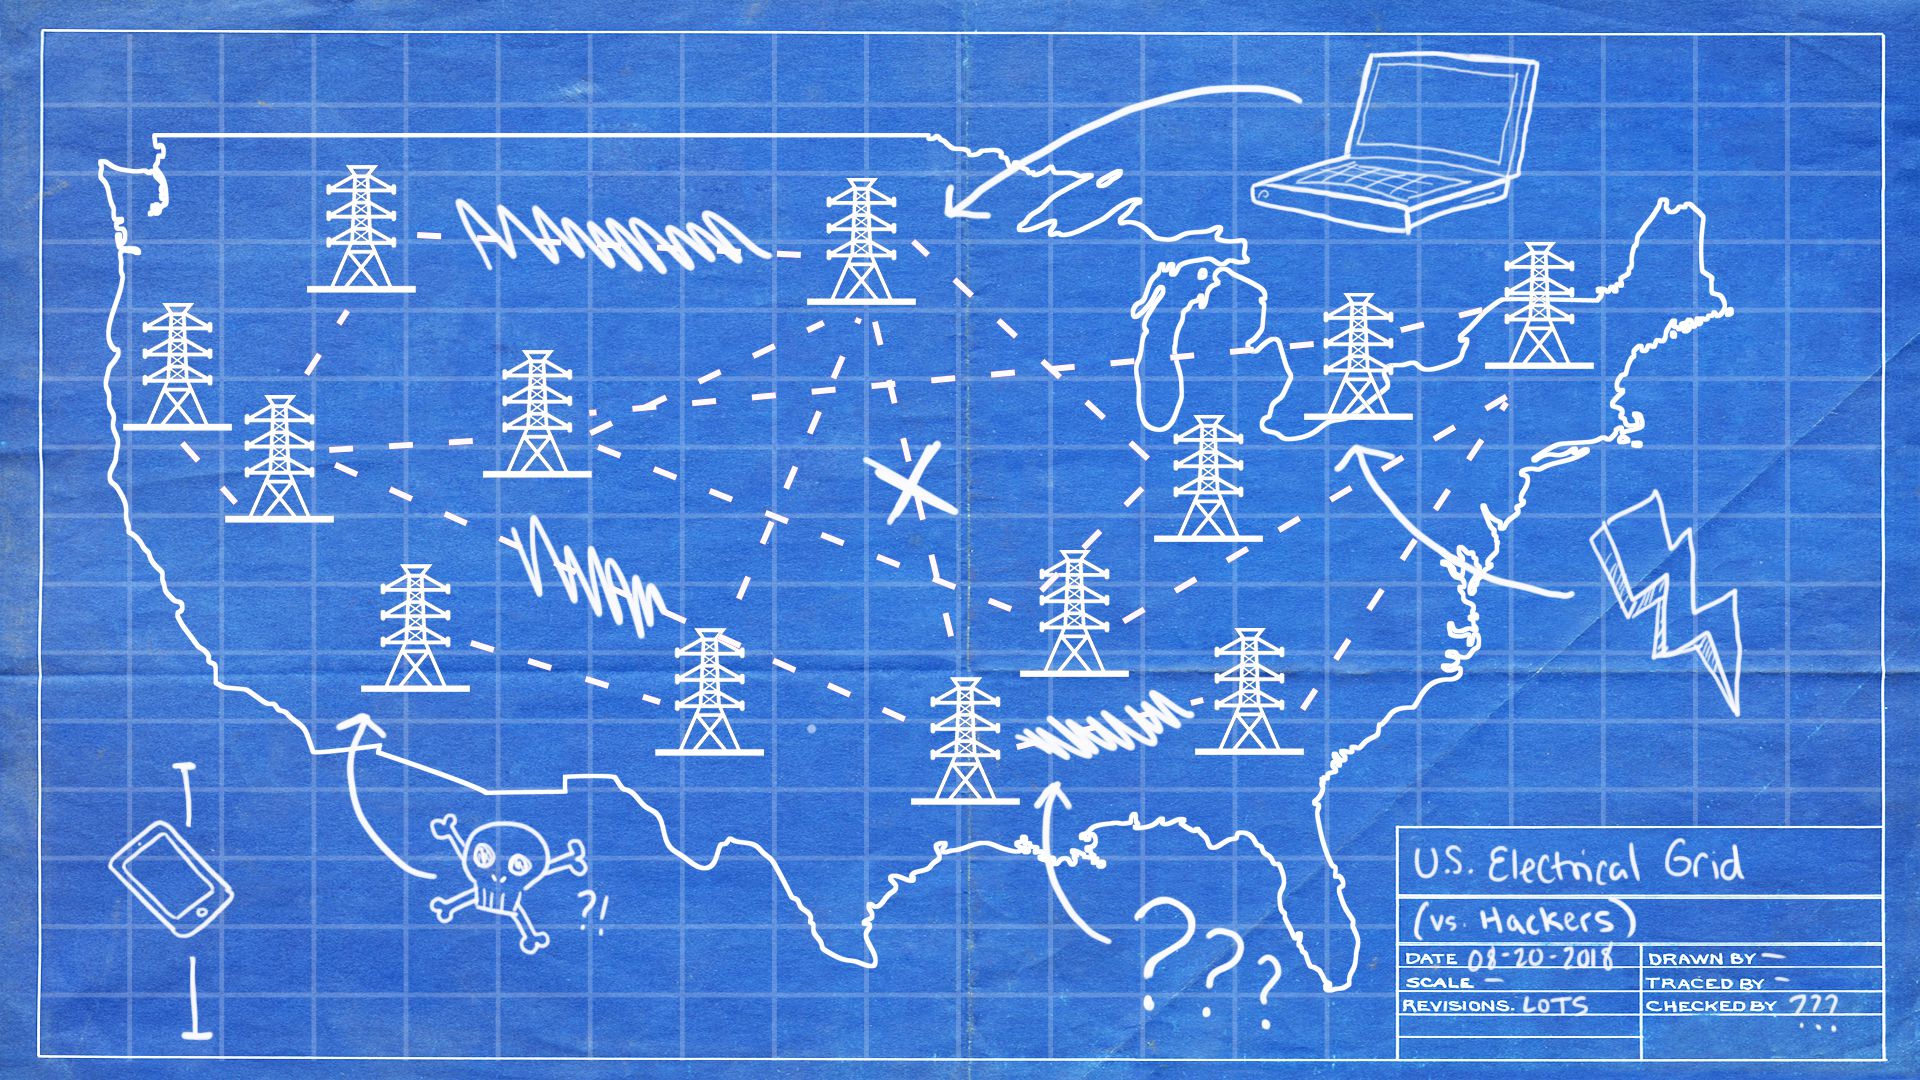 ?!
? ? ?
U.S. Electrical Grid
(vs. Hackers)
DATE 08-20-2018
DRAWN BY —
SCALE —
TRACED BY -
REVISIONS. LOTS
CHECKED BY ???